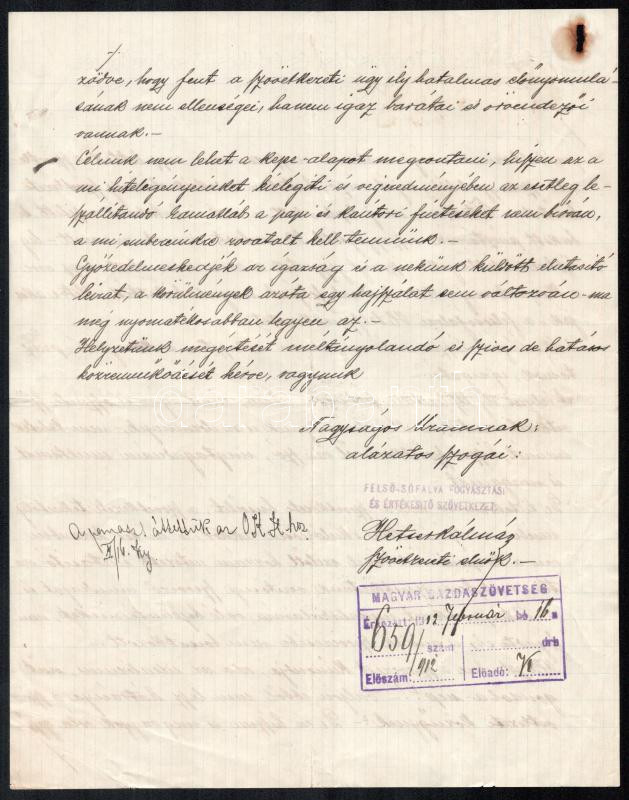 ződve, hogy fent a szövetkezeti ügy ily hatalmas előnyomulá-
sának nem ellenségei, hanem igaz barátai és örvendezői
vannak.-
Célunk nem lehet a kepe-alapot megrontani, hiszen az a
mi hiteligényeinket kielégíti és végeredményében az esetleg le-
szállítandó kamatláb a papi és kántori fizetéseket nem bírván,
a mi embereinkre rovatalt kell tennünk.-
Győzedelmeskedjék az igazság és a nekünk küldött elutasító
leirat, a körülmények azóta egy hajszálat sem változván - ma
még nyomatékosabban legyen az.-
Helyzetünk megértését méltányolandó és szíves de határos
közreműködését kérve, vagyunk
Nagyságos Uramnak:
alázatos szogái:
FELSŐ-SÓFALVA FOGYASZTÁSI
ÉS ÉRTÉKESÍTŐ SZÖVETKEZET
szövetkezeti elnök.-
A panaszt áttettük az O.K.H.hoz
II/16.
MAGYAR GAZDASZÖVETSÉG
Érkezett: 1912 február hó 16 n
659/912 szám drb
Előszám: Előadó: VI